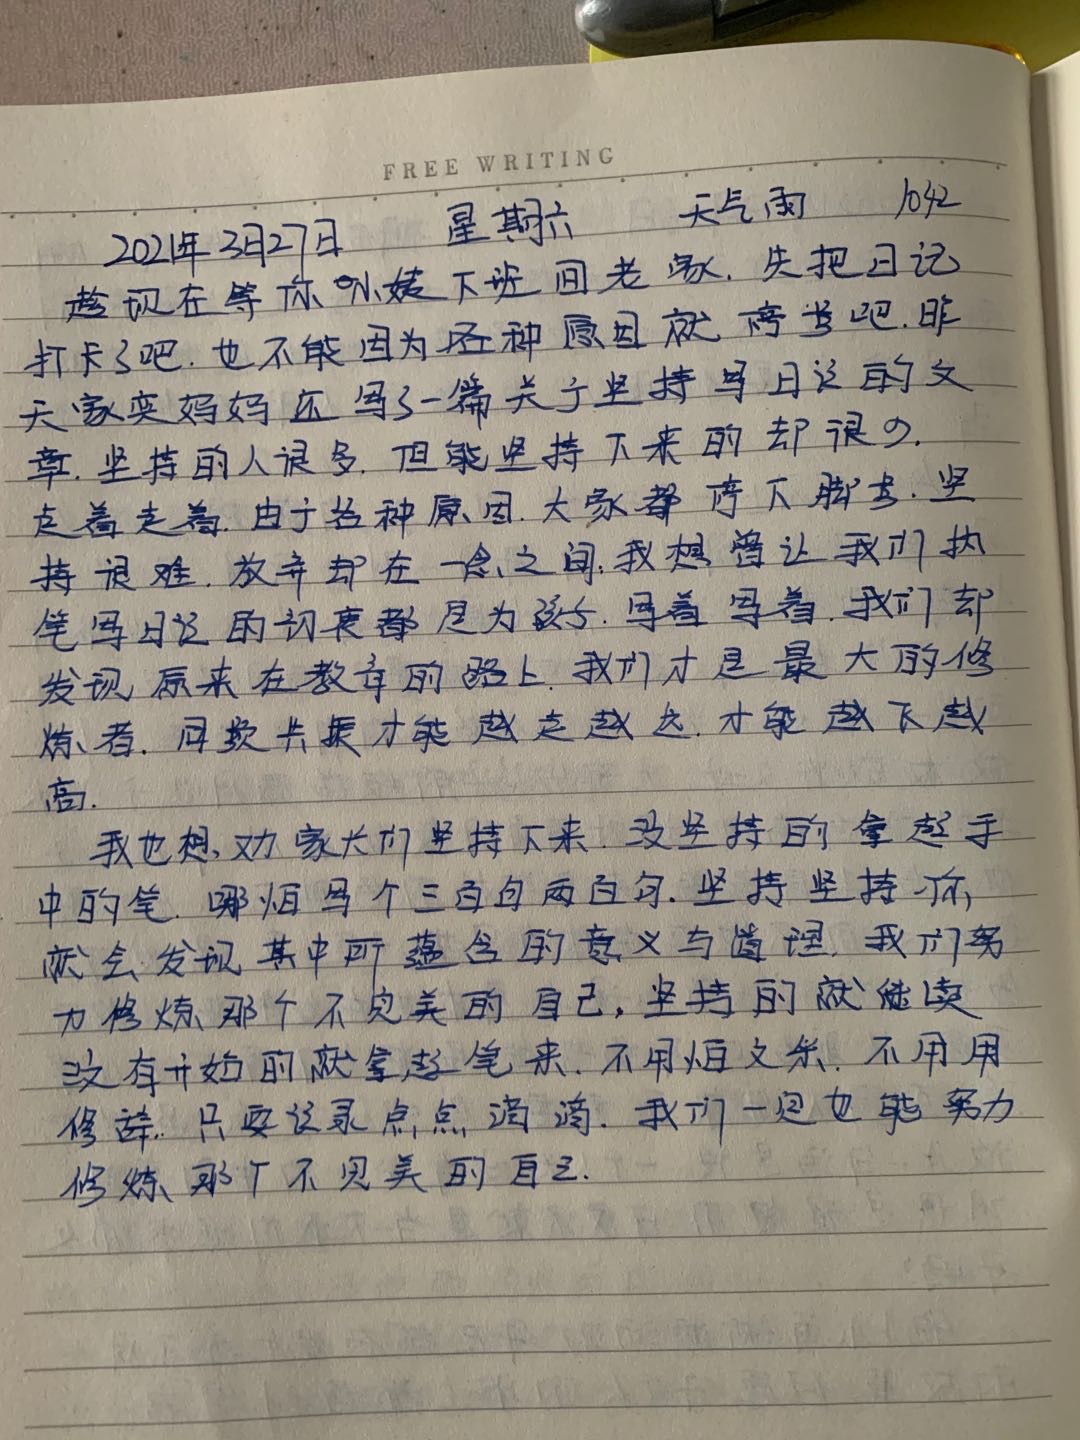 FREE WRITING
2021年3月27日 星期六 天气雨 1042
趁现在等你小姨下班回老家.先把日记
打卡了吧.也不能因为各种原因就停当吧.昨
天家奕妈妈还写了一篇关于坚持写日记的文
章.坚持的人很多.但能坚持下来的却很少.
走着走着.由于各种原因.大家都停下脚步.坚
持很难.放弃却在一念之间.我想曾让我们执
笔写日记的初衷都是为孩子.写着写着.我们却
发现原来在教育的路上.我们才是最大的修
炼者.同频共振才能越走越远.才能越飞越
高.
我也想劝家长们坚持下来.没坚持的拿起手
中的笔.哪怕写个三百句两百句.坚持坚持你
就会发现其中所蕴含的意义与道理.我们努
力修炼那个不完美的自己,坚持的就继续
没有开始的就拿起笔来.不用怕文采.不用用
修辞.只要记录点点滴滴.我们一定也能努力
修炼那个不完美的自己.